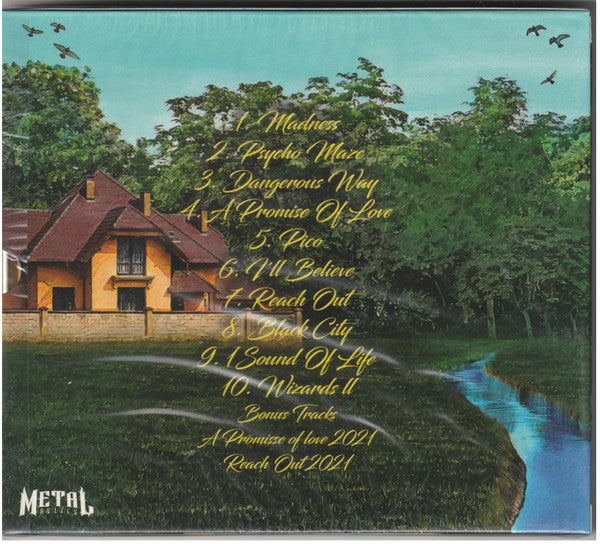 1. Madness
2. Psycho Maze
3. Dangerous Way
4. A Promise Of Love
5. Pico
6. I'll Believe
7. Reach Out
8. Black City
9. 1 Sound Of Life
10. Wizards II
Bonus Tracks
A Promisse of love 2021
Reach Out 2021
METAL